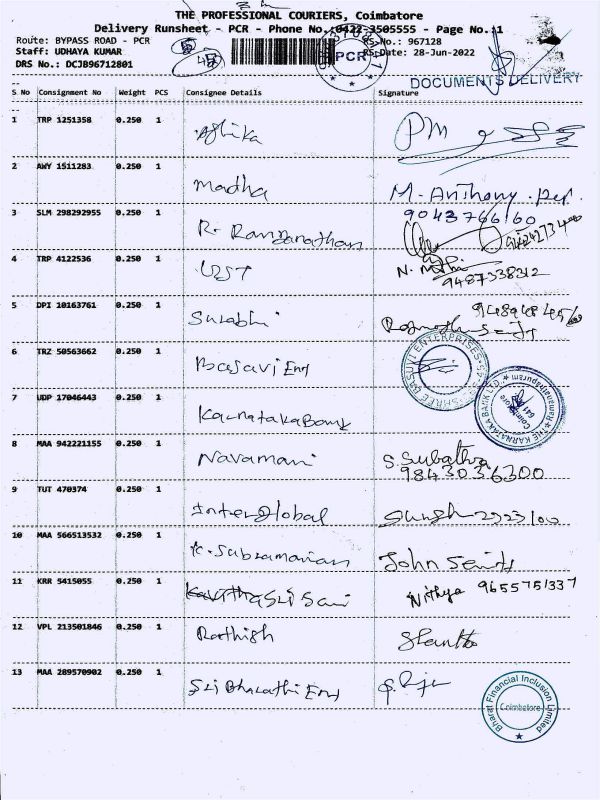 THE PROFESSIONAL COURIERS, Coimbatore
Delivery Runsheet - PCR - Phone No. 0422-3505555 - Page No.:1
Route: BYPASS ROAD - PCR
RS-No.: 967128
Staff: UDHAYA KUMAR
RS-Date: 28-Jun-2022
DRS No.: DCJB96712801
PCR
DOCUMENTS DELIVERY
S No Consignment No Weight PCS Consignee Details Signature
1 TRP 1251358 0.250 1
PM
2 AWY 1511283 0.250 1 Madha M. Anthony
3 SLM 298292955 0.250 1 R. Ranganathan
9043766160
4 TRP 4122536 0.250 1 UST
9487338312
5 DPI 10163761 0.250 1 Surabhi
6 TRZ 50563662 0.250 1 Basavi Eng
SHREE BASUVI ENTERPRISES
7 UDP 17046443 0.250 1 Karnataka Bank
THE KARNATAKA BANK LTD. Ramanathapuram
8 MAA 942221155 0.250 1 Navamani S. Subathra
9843036300
9 TUT 470374 0.250 1 InterGlobal
10 MAA 566513532 0.250 1 K. Subramanian John
11 KRR 5415055 0.250 1 Sri Sai Nithya 9655751337
12 VPL 213501846 0.250 1 Rathish
13 MAA 289570902 0.250 1 Sri Bharathi Eng S. Raju
Bharat Financial Inclusion Limited
Coimbatore